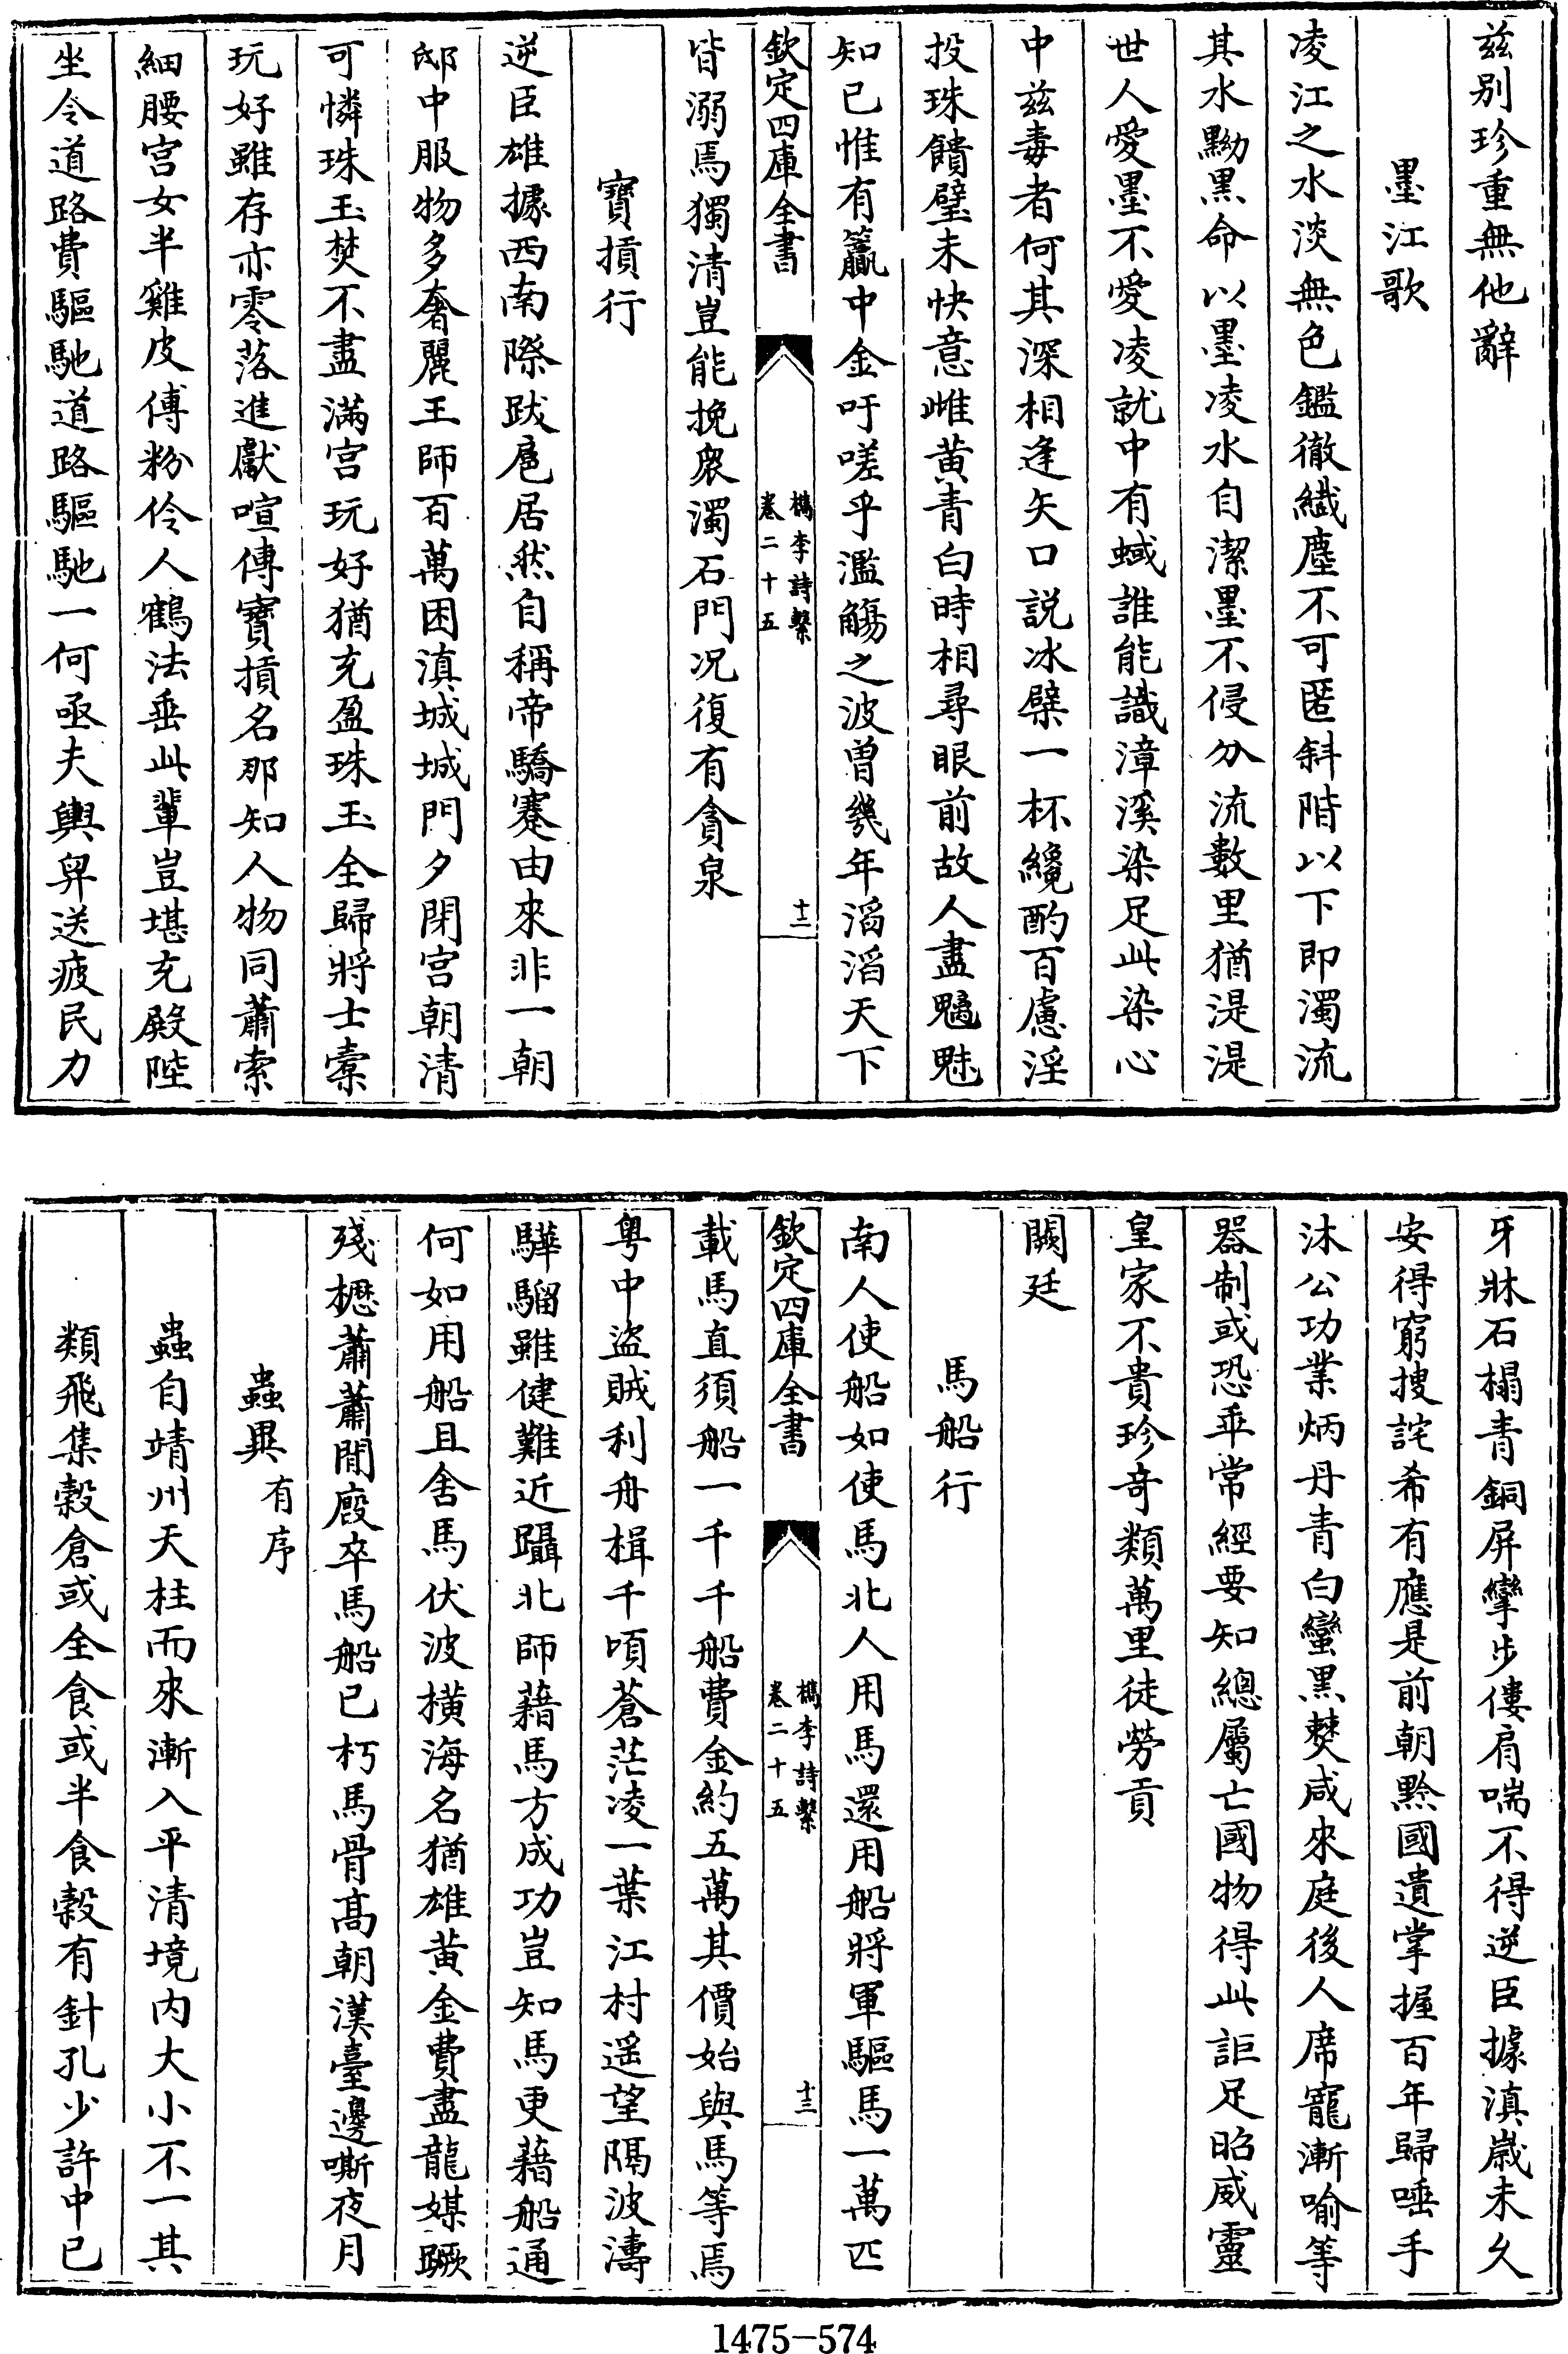 兹别珍重無他辭
墨江歌
凌江之水淡無色鑑徹纎塵不可匿斜階以下即濁流
其水黝黑命以墨凌水自潔墨不侵分流數里猶湜湜
世人愛墨不愛凌就中有蜮誰能識漳溪染足此染心
中兹毒者何其深相逢矢口説冰檗一杯纔酌百慮淫
投珠饋璧未快意雌黄青白時相尋眼前故人盡魑魅
知已惟有籯中金吁嗟乎濫觴之波曾幾年滔滔天下
欽定四庫全書
檇李詩繫
卷二十五
十二
皆溺焉獨清豈能挽衆濁石門况復有貪泉
寶摃行
逆臣雄據西南際跋扈居然自稱帝驕蹇由來非一朝
邸中服物多奢麗王師百萬困滇城城門夕閉宫朝清
可憐珠玉焚不盡滿宫玩好猶充盈珠玉全歸將士橐
玩好雖存亦零落進獻喧傳寶摃名那知人物同蕭索
細腰宫女半雞皮傅粉伶人鶴法垂此輩豈堪充殿陛
坐令道路費驅馳道路驅馳一何亟夫輿舁送疲民力
牙牀石榻青銅屏攣步僂肩喘不得逆臣據滇嵗未乆
安得窮搜詫希有應是前朝黔國遺掌握百年歸唾手
沐公功業炳丹青白蠻黑僰咸來庭後人席寵漸喻等
器制或恐乖常經要知總屬亡國物得此詎足昭威靈
皇家不貴珍竒類萬里徒勞貢
闕廷
馬船行
南人使船如使馬北人用馬還用船將軍驅馬一萬匹
欽定四庫全書
檇李詩繫
卷二十五
十三
載馬直須船一千千船費金約五萬其價始與馬等焉
粤中盜賊利舟楫千頃蒼茫凌一葉江村遥望隔波濤
驊騮雖健難近躡北師藉馬方成功豈知馬更藉船通
何如用船且舍馬伏波横海名猶雄黄金費盡龍媒蹶
殘櫪蕭蕭閒廏卒馬船已朽馬骨髙朝漢臺邊嘶夜月
蟲異有序
蟲自靖州天柱而來漸入平清境内大小不一其
類飛集榖倉或全食或半食榖有針孔少許中已
1475-574